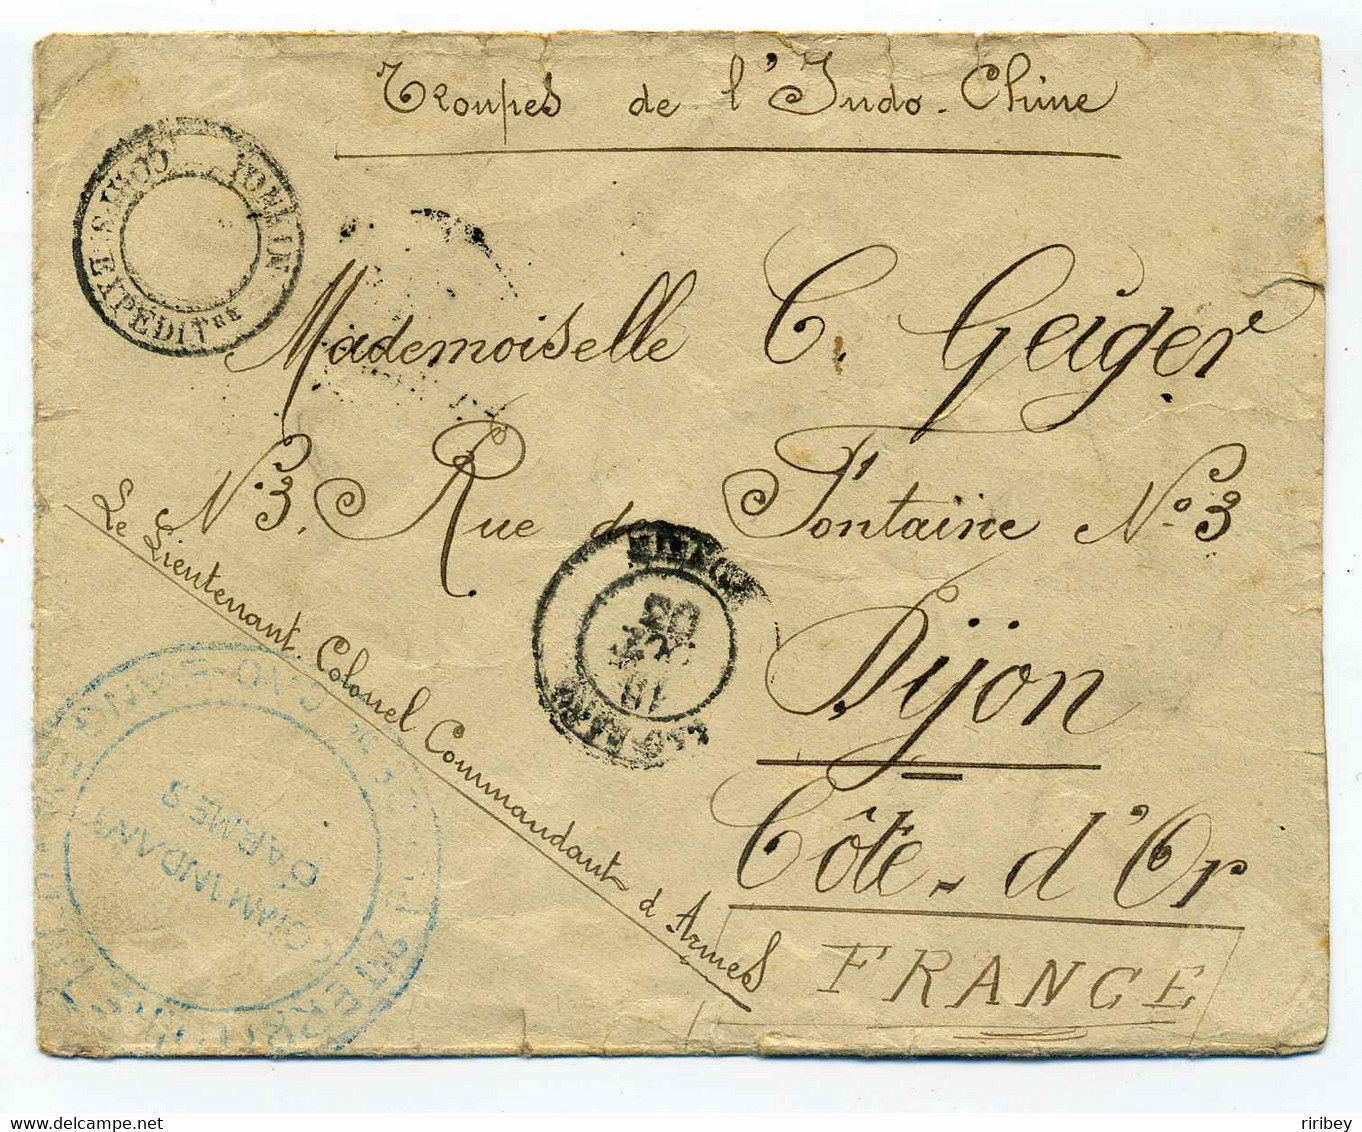 Troupes de l'Indo-Chine
CORPS EXPEDITRE TONKIN
Mademoiselle C. Geiger
N°3. Rue de Fontaine N°3
Dijon
Côte-d'Or
FRANCE
Le Lieutenant. Colonel Commandant d'Armes
TONKIN
03
18
LAO-KAY
COMMANDANT
D'ARMES
riribey